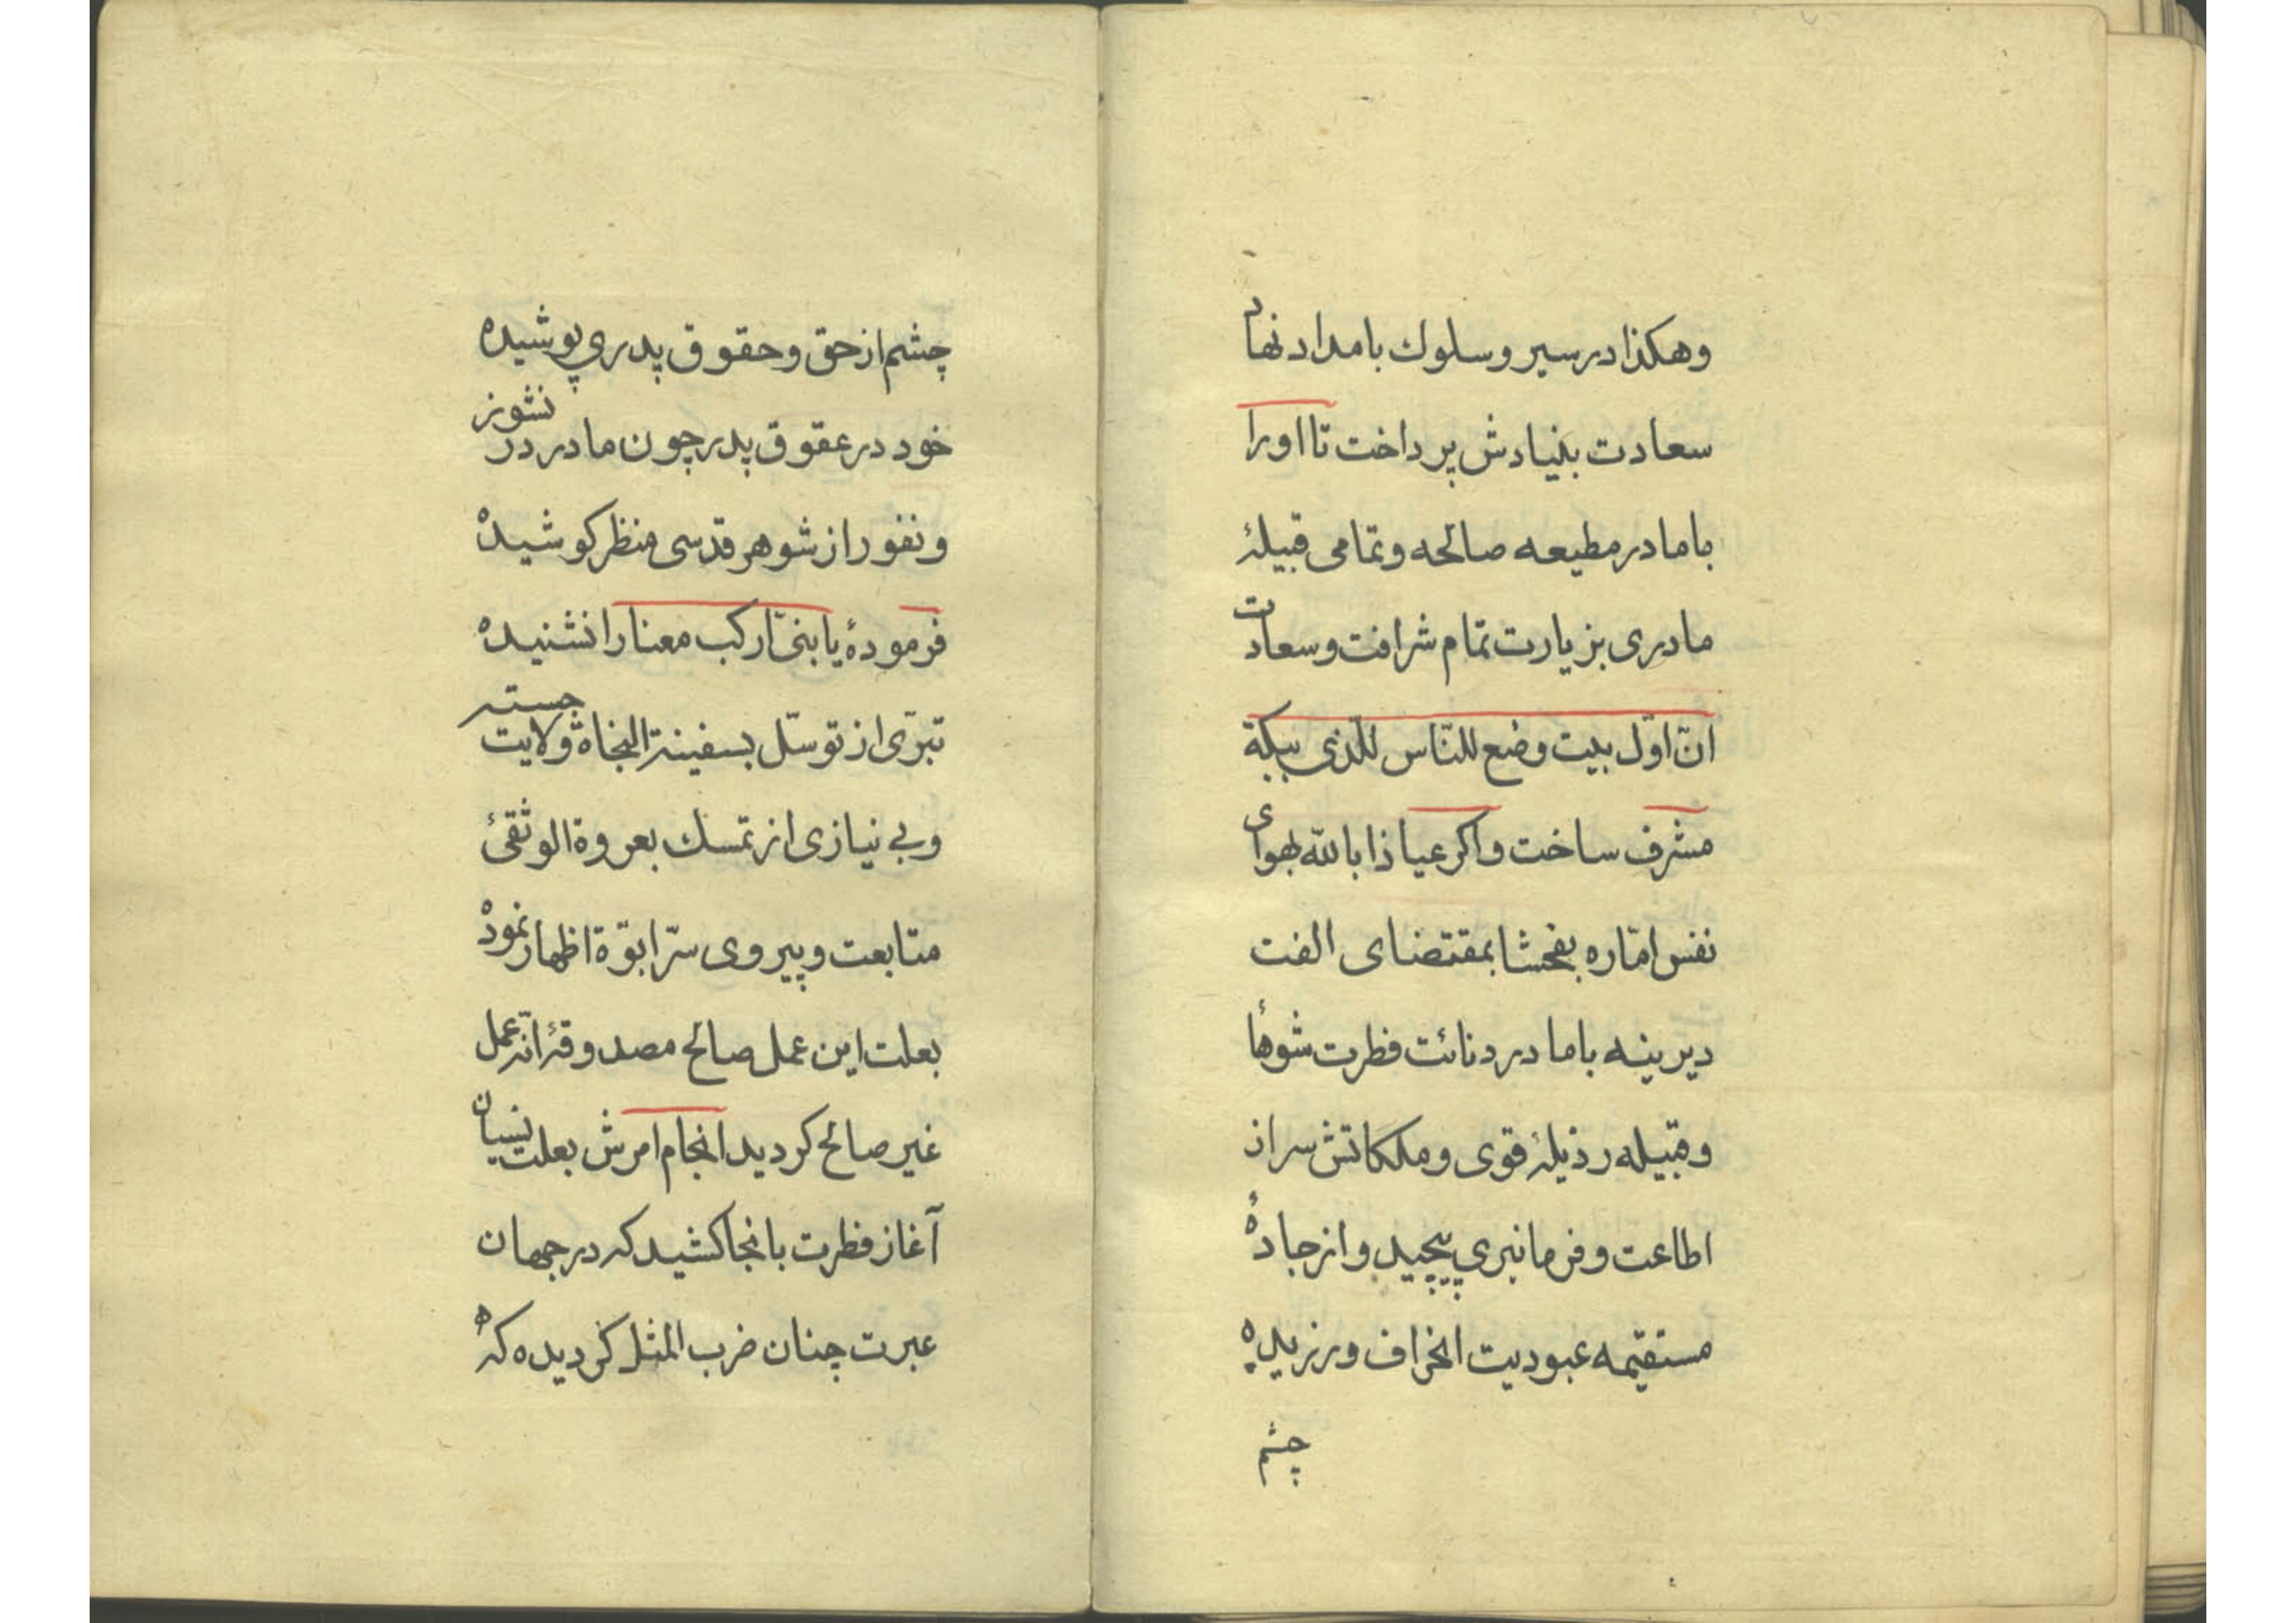 وهكذا در سير و سلوك بامداد نهاد
سعادت بنيادش پرداخت تا او را
با مادر مطيعه صالحه و تمامى قبيلۀ
مادرى بزيارت تمام شرافت و سعادت
انّ اوّل بيت وضع للنّاس للّذى ببكة
مشرف ساخت واكر عياذا بالله بهواى
نفس امّاره بفحشا بمقتضاى الفت
ديرينه با مادر دنائت فطرت شوهأ
و قبيله رذيلۀ قوى و ملكاتش سر از
اطاعت و فرمانبري پيچيد و از جادهٔ
مستقيمه عبوديت انحراف ورزيده
چشم
چشم از حق و حقوق پدري پوشيده
خود در عقوق پدر چون مادر در نشوز
و نفور از شوهر قدسى منظر كوشيده
فرمودۀ يا بنىّ اركب معنا را نشنيده
تبرّى از توسّل بسفينة النجاة ولايت جسته
وبى نيازى از تمسك بعروة الوثقىٔ
متابعت و پيروى سرّ ابوّة اظهار نموده
بعلت اين عمل صالح مصدوقۀ انّه عمل
غير صالح كرديد انجام امرش بعلت نسيان
آغاز فطرت بانجا كشيد كه در جهان
عبرت چنان ضرب المثل كرديده كه